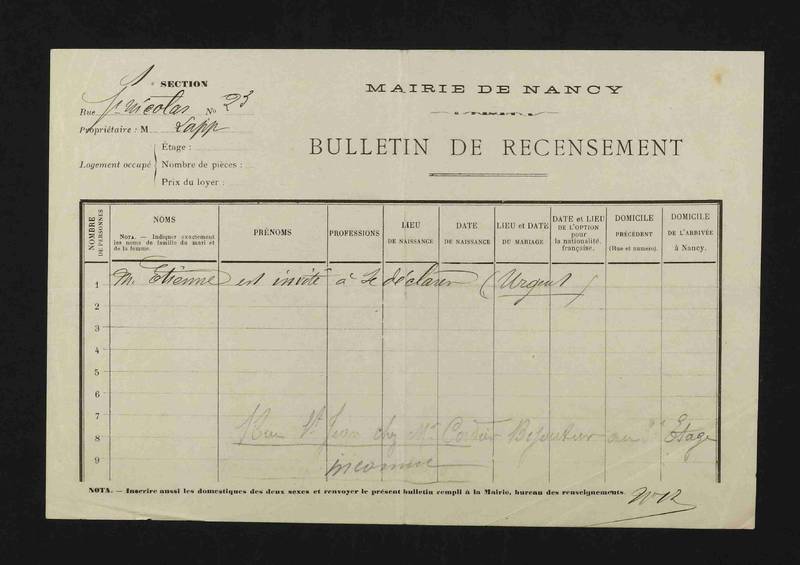 SECTION
Rue St Nicolas No 23
Propriétaire : M Lapp
Logement occupé
Étage :
Nombre de pièces :
Prix du loyer :
MAIRIE DE NANCY
BULLETIN DE RECENSEMENT
NOMBRE DE PERSONNES
NOMS
NOTA. — Indiquer exactement
les noms de famille du mari et
de la femme.
PRÉNOMS
PROFESSIONS
LIEU
DE NAISSANCE
DATE
DE NAISSANCE
LIEU et DATE
DU MARIAGE
DATE et LIEU
DE L'OPTION
pour
la nationalité
française.
DOMICILE
PRÉCÉDENT
(Rue et numéro).
DOMICILE
DE L'ARRIVÉE
à Nancy.
1 M. Etienne est invité à se déclarer (Urgent)
2
3
4
5
6
7
8 Rue St Jean chez Mr Cordier Bijoutier au Etage
9 inconnu
NOTA. — Inscrire aussi les domestiques des deux sexes et renvoyer le présent bulletin rempli à la Mairie, bureau des renseignements.